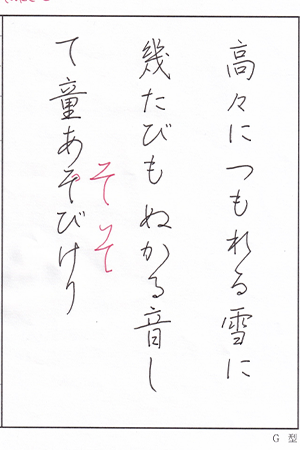 高々につもれる雪に
幾たびもぬかる音し
て童あそびけり
そ そ
G 型